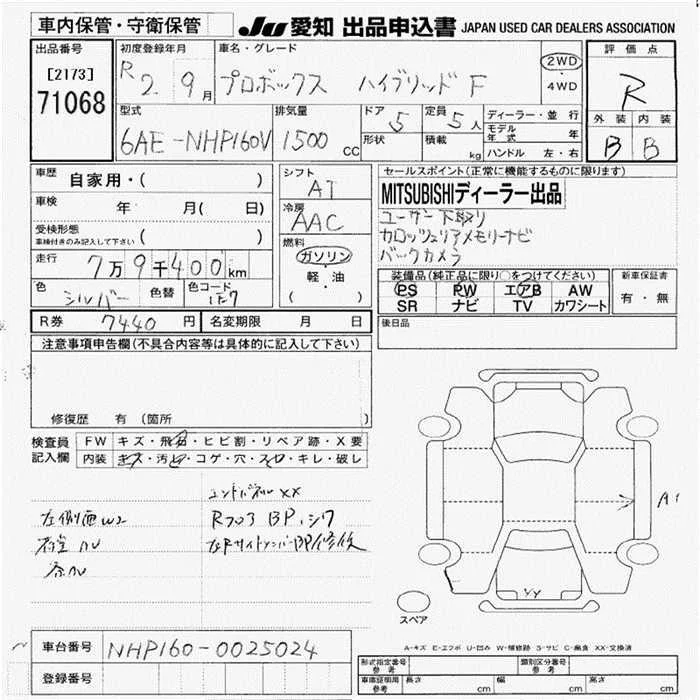 車内保管・守衛保管
JU 愛知 出品申込書 JAPAN USED CAR DEALERS ASSOCIATION
出品番号 初度登録年月 車名・グレード 2WD・4WD 評価点
[2173]
71068
R2. 9月 プロボックス ハイブリッド F R
型式 排気量 ドア 定員 ディーラー・並行 外装 内装
6AE-NHP160V 1500cc 5 5人
形状 積載 kg
モデル年式 年
ハンドル 左・右
B B
車歴 自家用・( )
シフト AT
セールスポイント(正常に機能するものに限ります)
MITSUBISHIディーラー出品
車検 年 月( 日)
冷房 AAC
ユーザー下取り
カロッツェリアメモリーナビ
バックカメラ
受検形態
車検付きのみ記入して下さい ( )
燃料 ガソリン・軽・油 ( )
走行 7万9千400km
装備品(純正品に限り○をつけてください) 新車保証書
PS PW エアB AW 有・無
SR ナビ TV カワシート
色 シルバー 色替 色コード 1F7
後日品
R券 7440円 名変期限 月 日
注意事項申告欄(不具合内容等は具体的に記入して下さい)
修復歴 有(箇所
検査員記入欄
FW キズ・飛石・ヒビ割・リペア跡・X要
内装 キズ・汚レ・コゲ・穴・スレ・キレ・破レ
エンドパネルXX
左側面W2
RフロアBP、シワ
A1
スペア
A-キズ E-エクボ U-凹み W-補修跡 S-サビ C-腐食 XX-交換済
車台番号 NHP160-0025024
登録番号
形式指定番号 参考 類別区分番号 参考
車庫証明用 参考 長さ cm 幅 cm 高さ cm